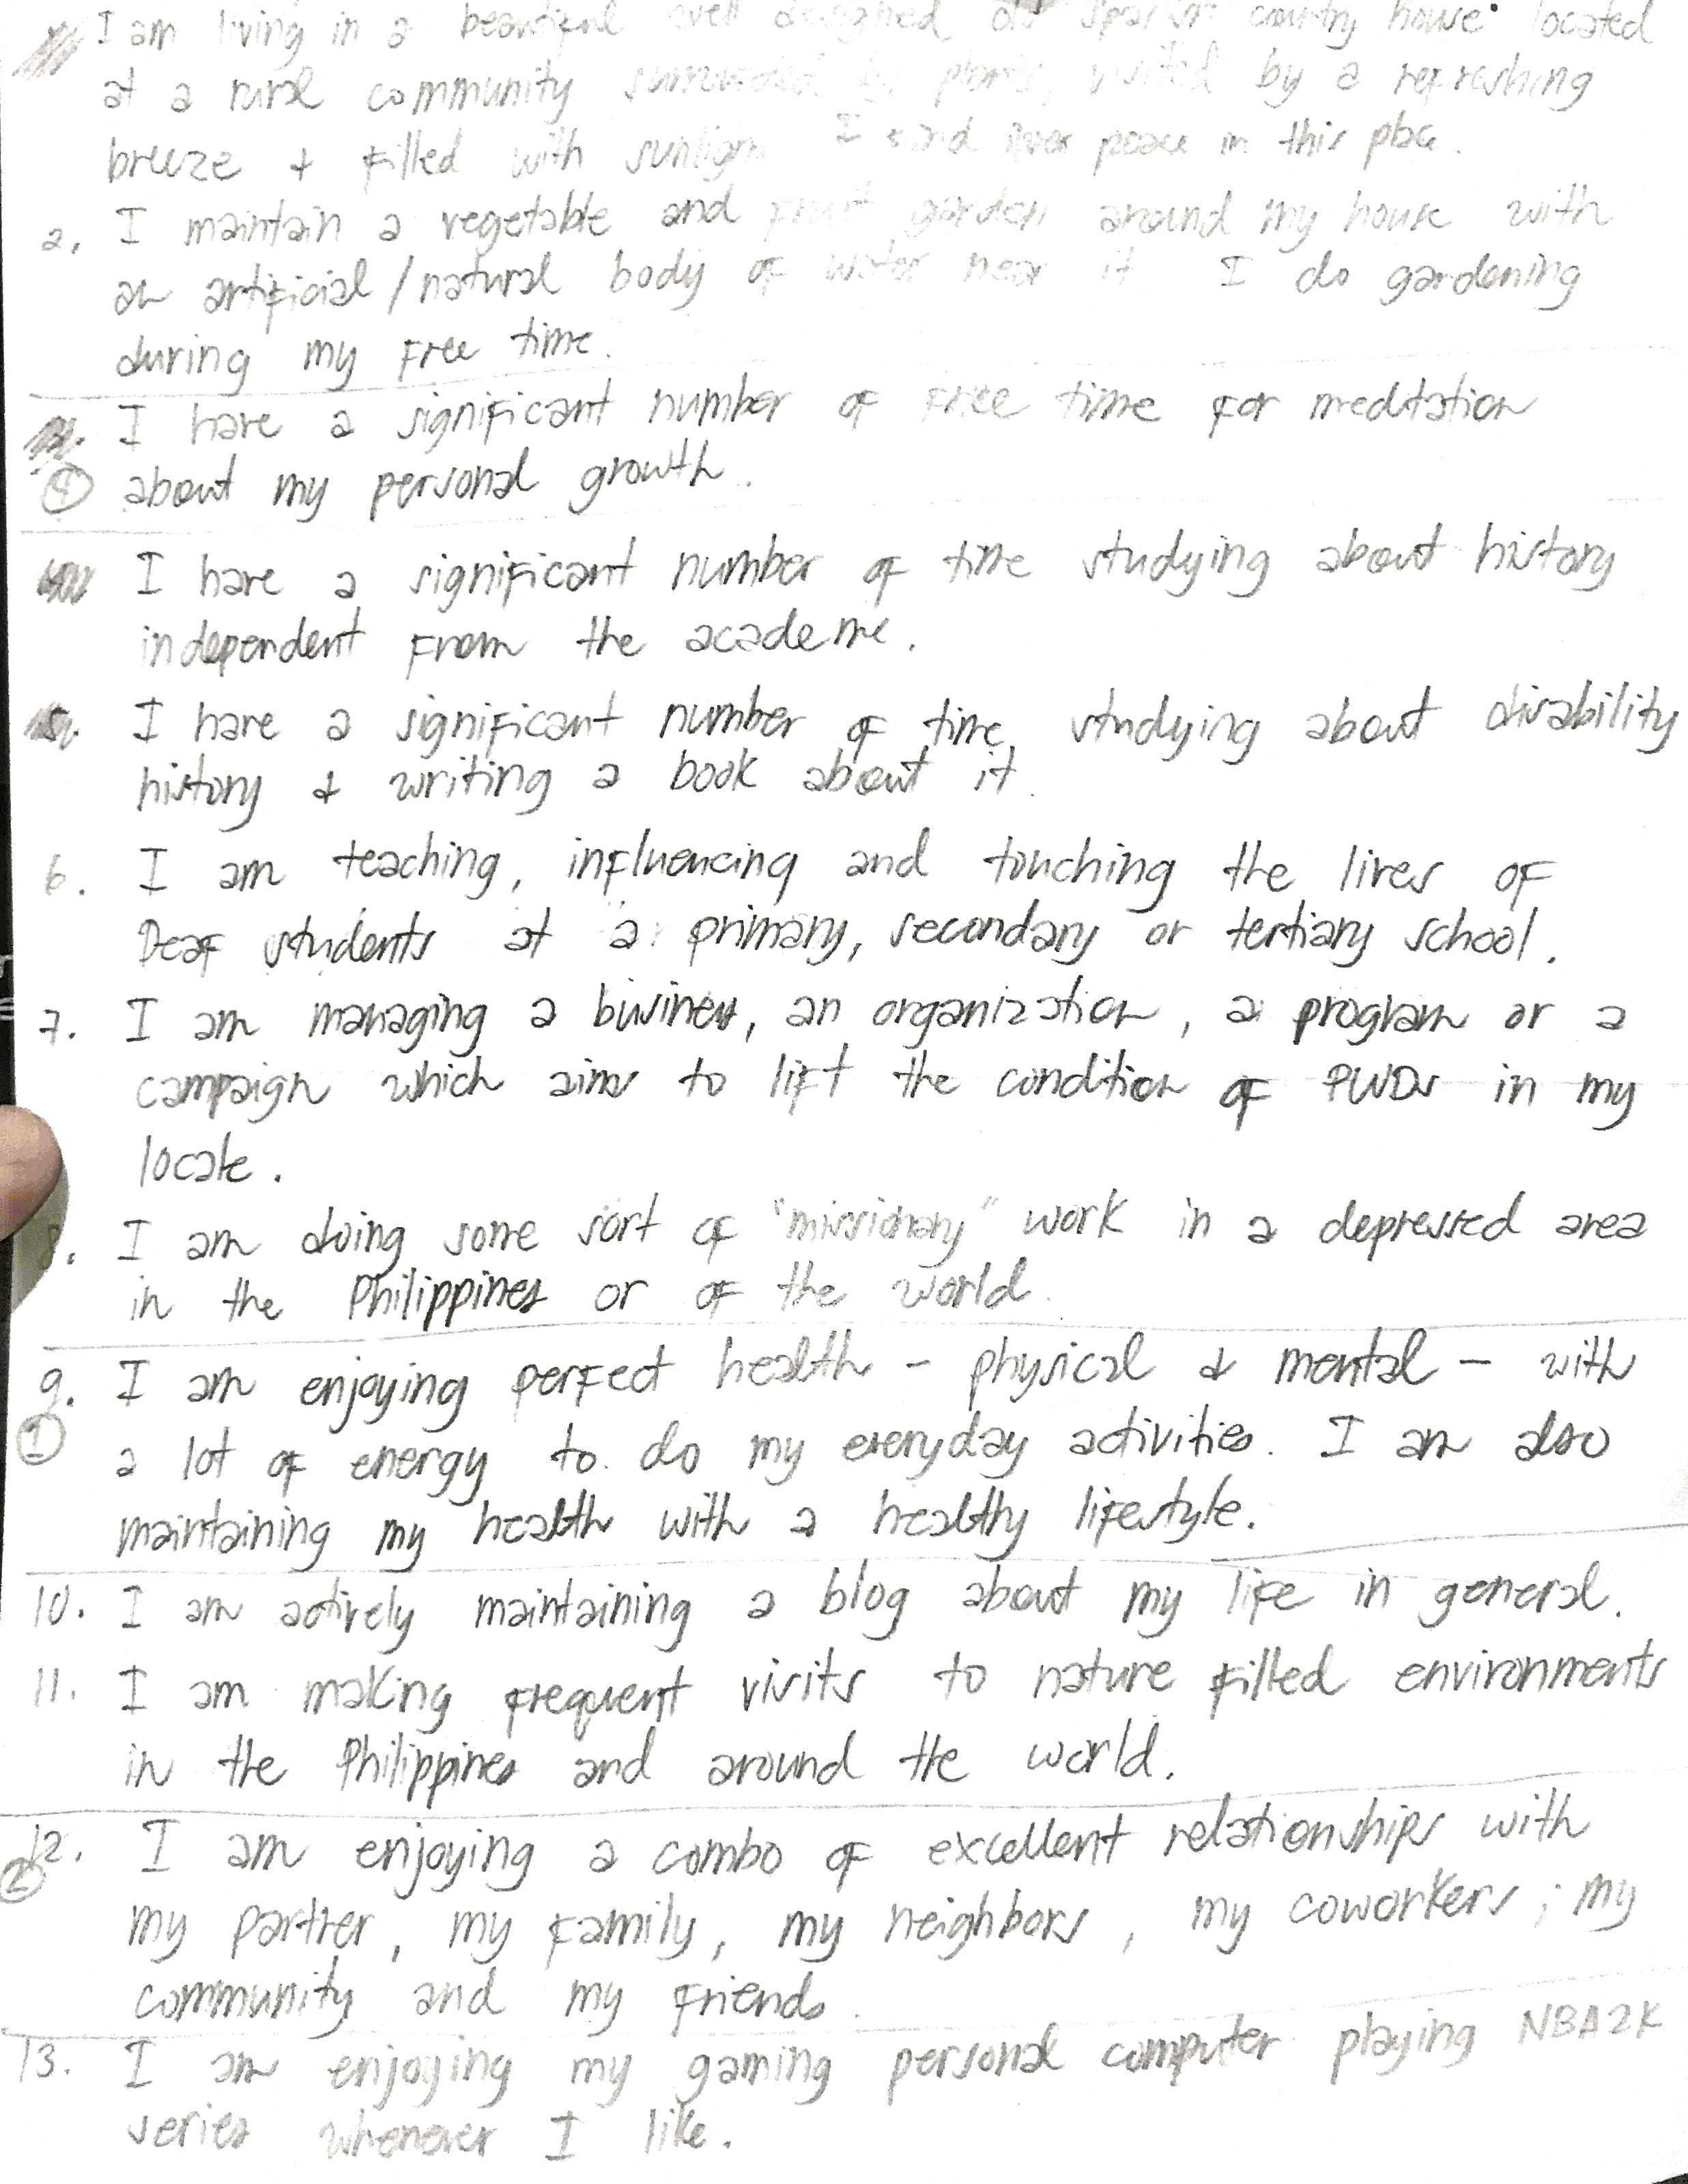 I am living in a beautiful well designed old country house located
at a rural community surrounded by plants, visited by a refreshing
breeze & filled with sunlight I find inner peace in this place.
2. I maintain a vegetable and fruit garden around my house with
an artificial/natural body of water near it I do gardening
during my free time.
I have a significant number of free time for medtation
④ about my personal growth.
I have a significant number of time studying about history
independent from the academe.
5. I have a significant number of time studying about disability
history & writing a book about it.
6. I am teaching, influencing and touching the lives of
Deaf students at a primary, secondary or tertiary school.
7. I am managing a business, an organization, a program or a
campaign which aims to lift the condition of PWDs in my
locale.
8. I am doing some sort of "missionary" work in a depressed area
in the Philippines or of the world.
9. I am enjoying perfect health - physical & mental - with
① a lot of energy to do my everyday activities. I am also
maintaining my health with a healthy lifestyle.
10. I am actively maintaining a blog about my life in general.
11. I am making frequent visits to nature filled environments
in the Philippines and around the world.
12. I am enjoying a combo of excellent relationships with
② my partner, my family, my neighbors, my coworkers; my
community and my friends.
13. I am enjoying my gaming personal computer playing NBA2K
series whenever I like.